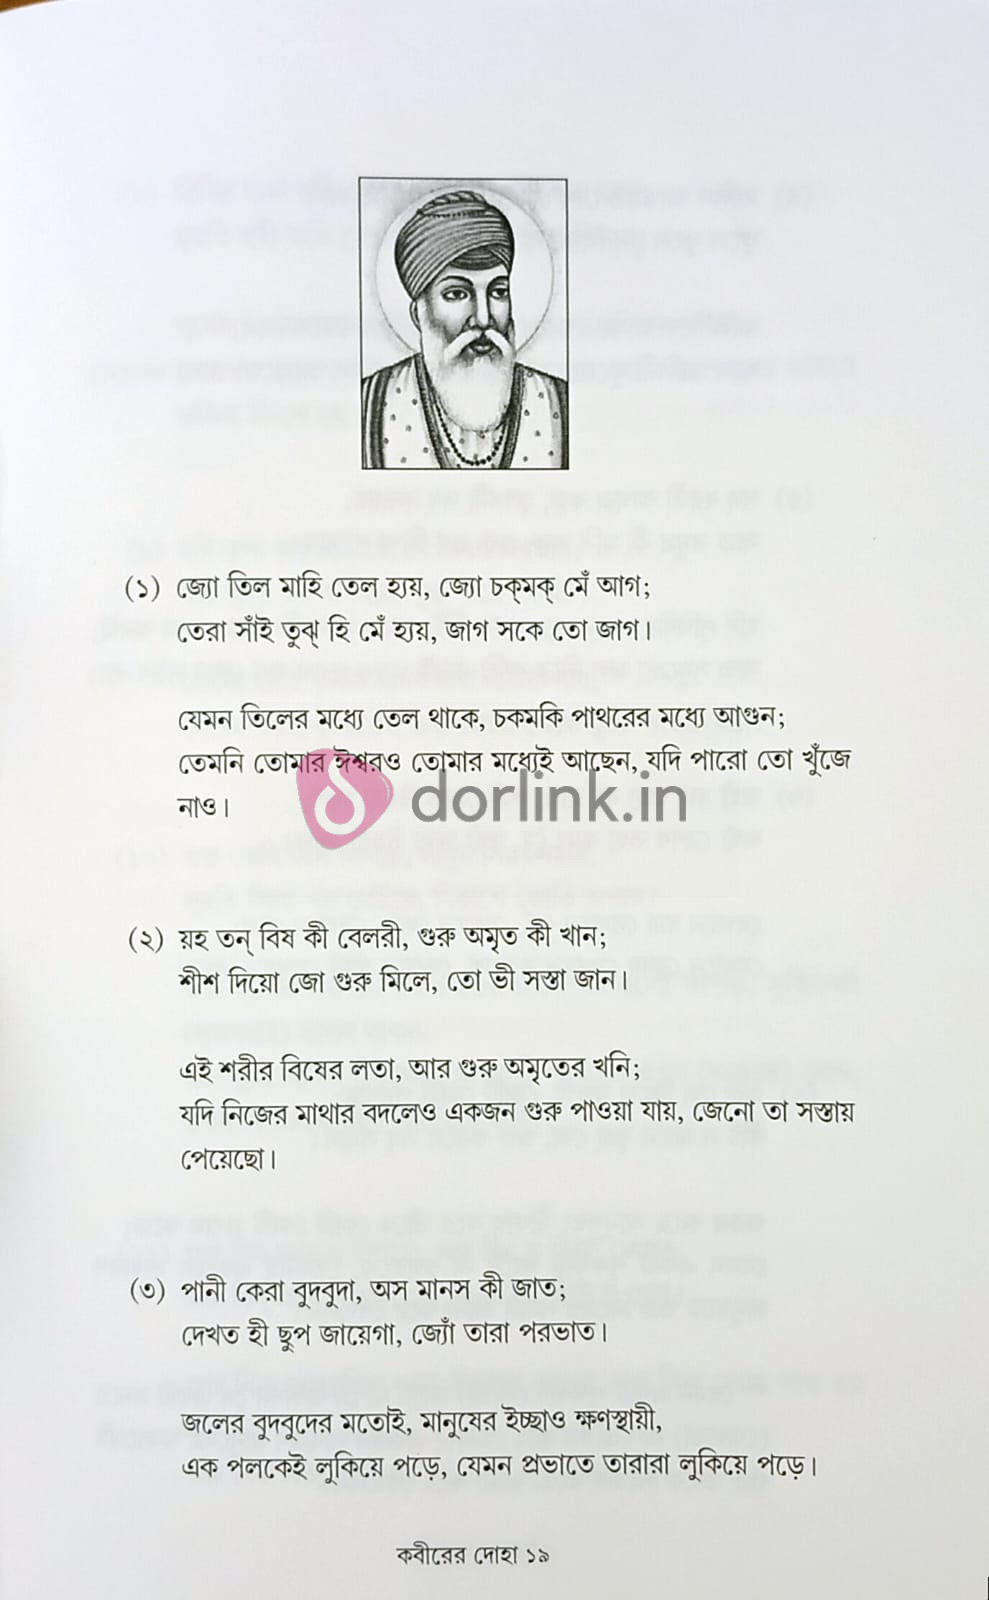 (১) জ্যো তিল মাহি তেল হ্যয়, জ্যো চক্‌মক্‌ মেঁ আগ;
তেরা সাঁই তুঝ্‌ হি মেঁ হ্যয়, জাগ সকে তো জাগ।
যেমন তিলের মধ্যে তেল থাকে, চকমকি পাথরের মধ্যে আগুন;
তেমনি তোমার ঈশ্বরও তোমার মধ্যেই আছেন, যদি পারো তো খুঁজে
নাও।
dorlink.in
(২) য়হ তন্‌ বিষ কী বেলরী, গুরু অমৃত কী খান;
শীশ দিয়ো জো গুরু মিলে, তো ভী সস্তা জান।
এই শরীর বিষের লতা, আর গুরু অমৃতের খনি;
যদি নিজের মাথার বদলেও একজন গুরু পাওয়া যায়, জেনো তা সস্তায়
পেয়েছো।
(৩) পানী কেরা বুদবুদা, অস মানস কী জাত;
দেখত হী ছুপ জায়েগা, জ্যোঁ তারা পরভাত।
জলের বুদবুদের মতোই, মানুষের ইচ্ছাও ক্ষণস্থায়ী,
এক পলকেই লুকিয়ে পড়ে, যেমন প্রভাতে তারারা লুকিয়ে পড়ে।
কবীরের দোহা ১৯